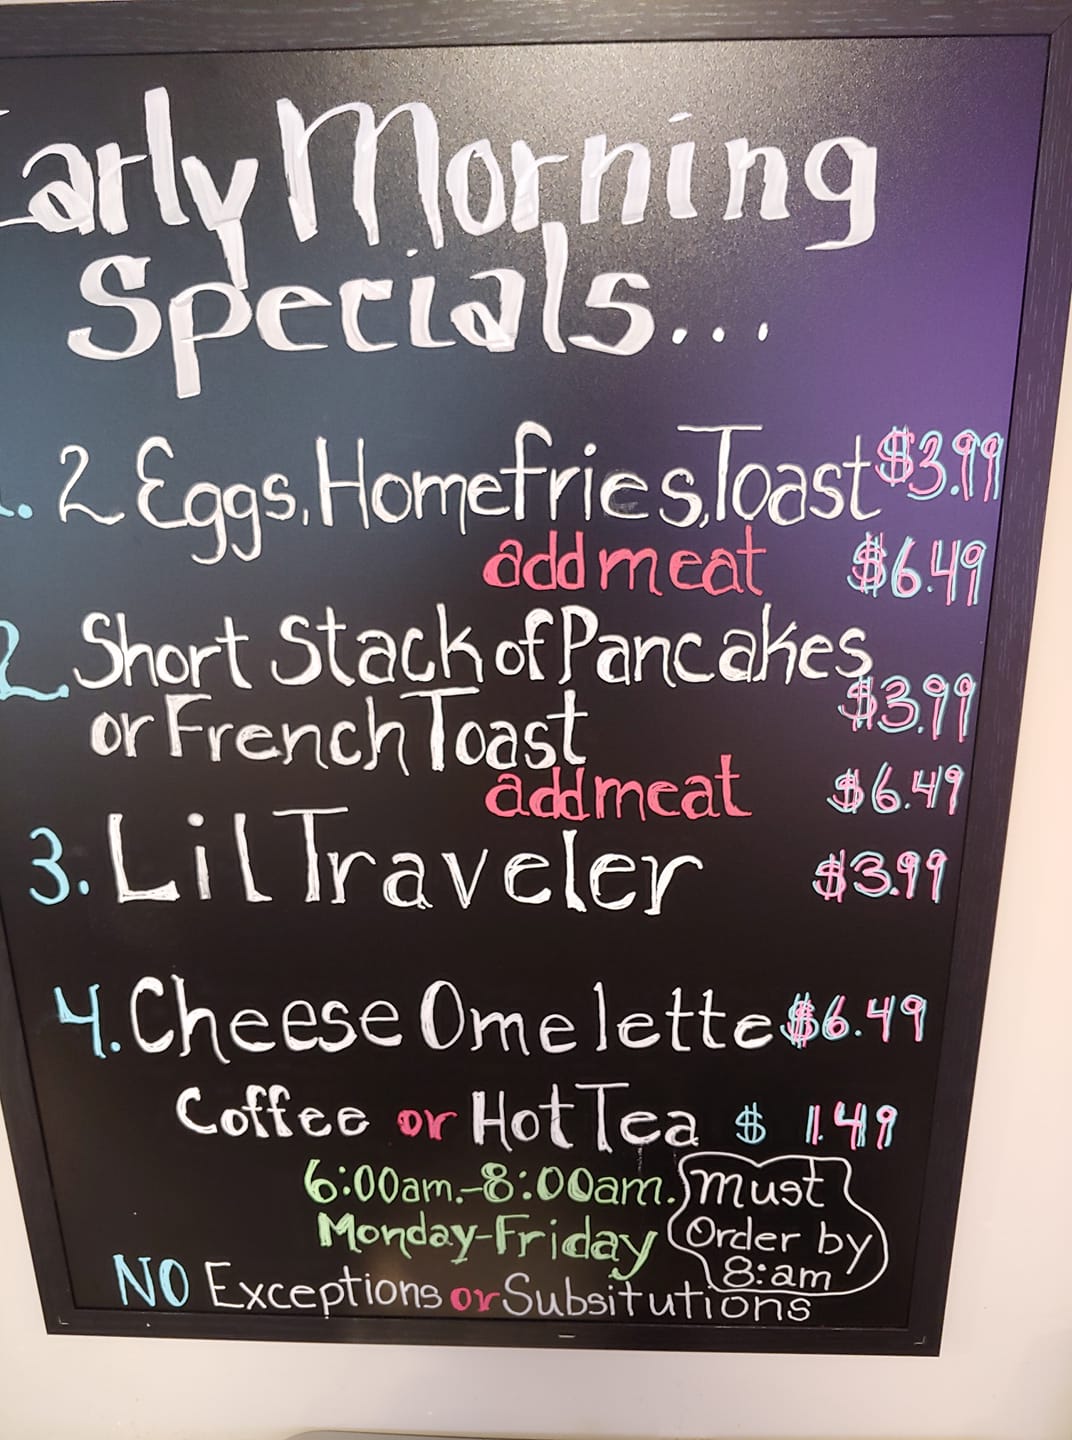 Early Morning
Specials...
1. 2 Eggs, Homefries, Toast $3.99
add meat $6.49
2. Short Stack of Pancakes
or French Toast $3.99
add meat $6.49
3. Lil Traveler $3.99
4. Cheese Omelette $6.49
Coffee or Hot Tea $ 1.49
6:00am.-8:00am.
Monday-Friday
must
Order by
8:am
NO Exceptions or Subsitutions